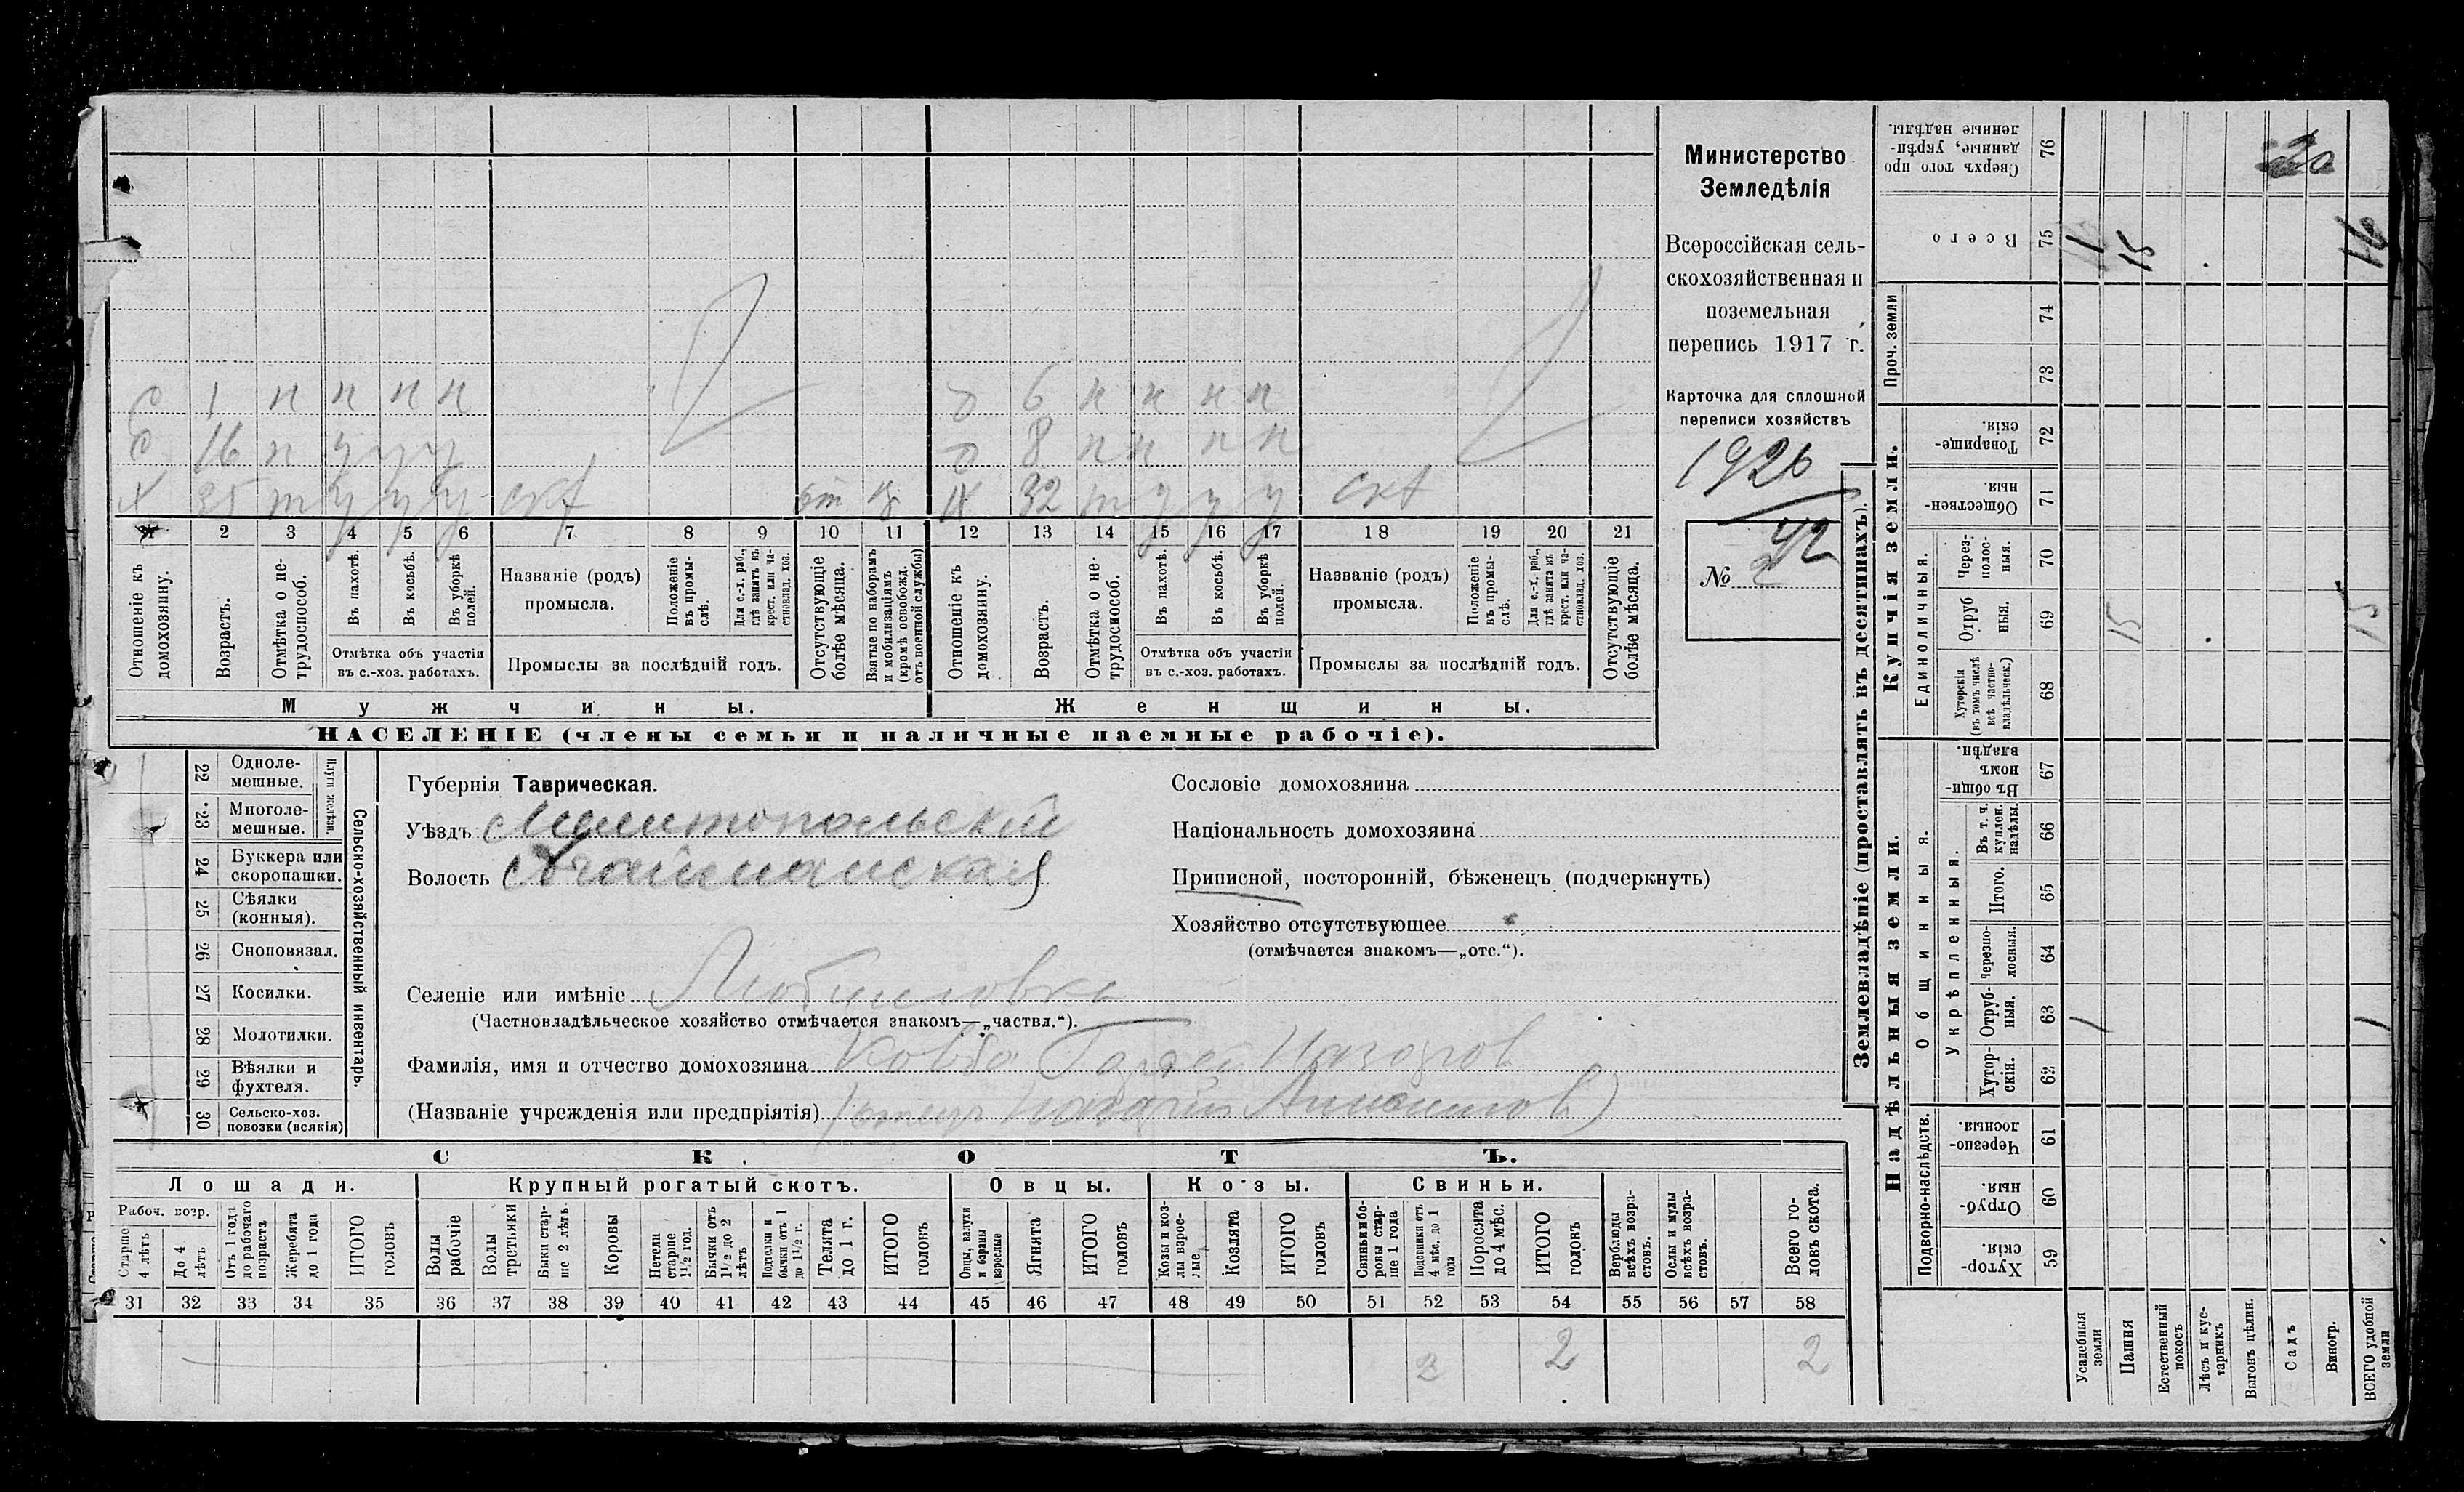 Министерство
Земледѣлія
Всероссійская сель-
скохозяйственная и
поземельная
перепись 1917 г.
Карточка для сплошной
переписи хозяйствъ
1926
42
№
С 1 н н н н
С 16 п у у у
Х 35 т у у у скт от
д 6 н н н н
д 8 н н н н
Ж 32 т у у у скт
1 2 3 4 5 6 7 8 9 10 11 12 13 14 15 16 17 18 19 20 21
Отношеніе къ домохозяину.
Возрастъ.
Отмѣтка о нетрудоспособ.
Въ пахотѣ.
Въ косьбѣ.
Въ уборкѣ полей.
Отмѣтка объ участіи
въ с.-хоз. работахъ.
Названіе (родъ)
промысла.
Положеніе въ промыслѣ.
Для с.-х. раб., гдѣ занятъ въ крест. или частновлад. хоз.
Промыслы за послѣдній годъ.
Отсутствующіе болѣе мѣсяца.
Взятые по наборамъ и мобилизаціямъ (кромѣ освобожд. отъ военной службы)
Отношеніе къ домохозяину.
Возрастъ.
Отмѣтка о нетрудоспособ.
Въ пахотѣ.
Въ косьбѣ.
Въ уборкѣ полей.
Отмѣтка объ участіи
въ с.-хоз. работахъ.
Названіе (родъ)
промысла.
Положеніе въ промыслѣ.
Для с.-х. раб., гдѣ занята въ крест. или частновлад. хоз.
Промыслы за послѣдній годъ.
Отсутствующіе болѣе мѣсяца.
Мужчины.
Женщины.
НАСЕЛЕНІЕ (члены семьи и наличные наемные рабочіе).
22 Одноле-
мешные.
23 Многоле-
мешные.
Плуги желѣзн.
24 Буккера или
скоропашки.
25 Сѣялки
(конныя).
26 Сноповязал.
27 Косилки.
28 Молотилки.
29 Вѣялки и
фухтеля.
30 Сельско-хоз.
повозки (всякія)
Сельско-хозяйственный инвентарь.
Губернія Таврическая.
Уѣздъ Мелитопольскій
Волость Агайманская
Селеніе или имѣніе Любимовка
(Частновладѣльческое хозяйство отмѣчается знакомъ—„частвл.“).
Фамилія, имя и отчество домохозяина Ковба Гордей Назаров
(Названіе учрежденія или предпріятія) (отецъ Назарій Анисимов)
Сословіе домохозяина
Національность домохозяина
Приписной, посторонній, бѣженецъ (подчеркнуть)
Хозяйство отсутствующее
(отмѣчается знакомъ—„отс.“).
СКОТЪ.
Лошади.
Крупный рогатый скотъ.
Овцы.
Козы.
Свиньи.
Рабоч. возр.
Старше 4 лѣтъ
До 4 лѣтъ
Отъ 1 года до рабочаго возраста
Жеребята до 1 года
ИТОГО головъ
Волы рабочіе
Волы третьяки
Быки старше 2 лѣтъ.
Коровы
Нетели старше 1½ год.
Бычки отъ 1½ до 2 лѣтъ
Подтелки и бычки отъ 1 до 1½ г.
Телята до 1 г.
ИТОГО головъ
Овцы, валухи и бараны взрослые
Ягнята
ИТОГО головъ
Козы и козлы взрослые
Козлята
ИТОГО головъ
Свиньи и боровы старше 1 года
Подсвинки отъ 4 мѣс. до 1 года
Поросята до 4 мѣс.
ИТОГО головъ
Верблюды всѣхъ возрастовъ.
Ослы и мулы всѣхъ возрастовъ.
Всего головъ скота.
31 32 33 34 35 36 37 38 39 40 41 42 43 44 45 46 47 48 49 50 51 52 53 54 55 56 57 58
2 2 2
Землевладѣніе (проставлять въ десятинахъ).
Надѣльныя земли.
Купчія земли.
Проч. земли
Подворно-наслѣдств.
Общинныя.
Укрѣпленныя.
Единоличныя.
Хуторскія 59
Отрубныя 60
Черезполосныя. 61
Хуторскія. 62
Отрубныя. 63
Черезполосныя. 64
Итого. 65
Въ т. ч. куплен. надѣлы. 66
Въ общинномъ владѣн. 67
Хуторскія (въ томъ числѣ всѣ частновладѣльческ.) 68
Отрубныя. 69
Черезполосныя. 70
Общественныя. 71
Товарищескія. 72
73
74
Всего 75
Сверхъ того проданные, укрѣпленные надѣлы. 76
Усадебныя земли 1 1
Пашня 15 15
Естественный покосъ
Лѣсъ и кустарникъ
Выгонъ цѣлин.
Садъ
Виногр.
ВСЕГО удобной земли 1 15 16